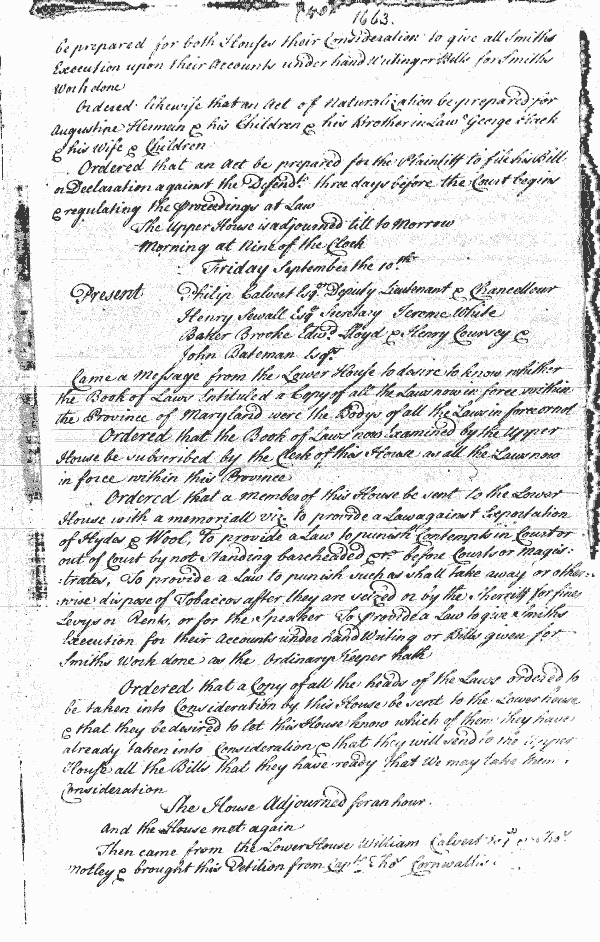 1663.
be prepared for both Houses their Consideration to give all Smiths
Execution upon their Accounts under hand Writing or Bills for Smiths
Work done
Ordered likewise that an Act of Naturalization be prepared for
Augustine Hermein & his Children & his Brother in Law George Hack
& his Wife & Children
Ordered that an Act be prepared for the Plaintiff to file his Bill
or Declaration against the Defend.t three days before the Court begins
& regulating the Proceedings at Law
The Upper House is adjourned till to Morrow
Morning at Nine of the Clock
Friday September the 10.th
Present Philip Calvert Esq.r Deputy Lieutenant & Chancellour
Henry Sewall Esq.r Secretary Jerome White
Baker Brooke Edw.d Lloyd & Henry Coursey &
John Bateman Esq.rs
Came a Message from the Lower House to desire to know whether
the Book of Laws Intituled a Copy of all the Laws now in force within
the Province of Maryland were the Bodys of all the Laws in force or not
Ordered that the Book of Laws now Examined by the Upper
House be subscribed by the Clerk of this House as all the Laws now
in force within this Province
Ordered that a member of this House be sent to the Lower
House with a memoriall viz. to provide a Law against Exportation
of Hydes & Wool, To provide a Law to punish Contempts in Court or
out of Court by not Standing bareheaded &c. before Courts or Magis:
:trates, To provide a Law to punish such as shall take away or other:
:wise dispose of Tobaccos after they are seized on by the Sherriff for fines
Levys or Rents, or for the Speaker To provide a Law to give Smiths
Execution for their Accounts under hand Writing or Bills given for
Smiths Work done as the Ordinary Keeper hath
Ordered that a Copy of all the heads of the Laws ordered to
be taken into Consideration by this House be sent to the Lower house
& that they be desired to let this House know which of them they have
already taken into Consideration & that they will send to the Upper
House all the Bills that they have ready that We may take them
Consideration
The House Adjourned for an hour.
and the House met again
Then came from the Lower House William Calvert Esq.r & Tho.s
Notley & brought this Petition from Cap.tn Tho.s Cornwallis